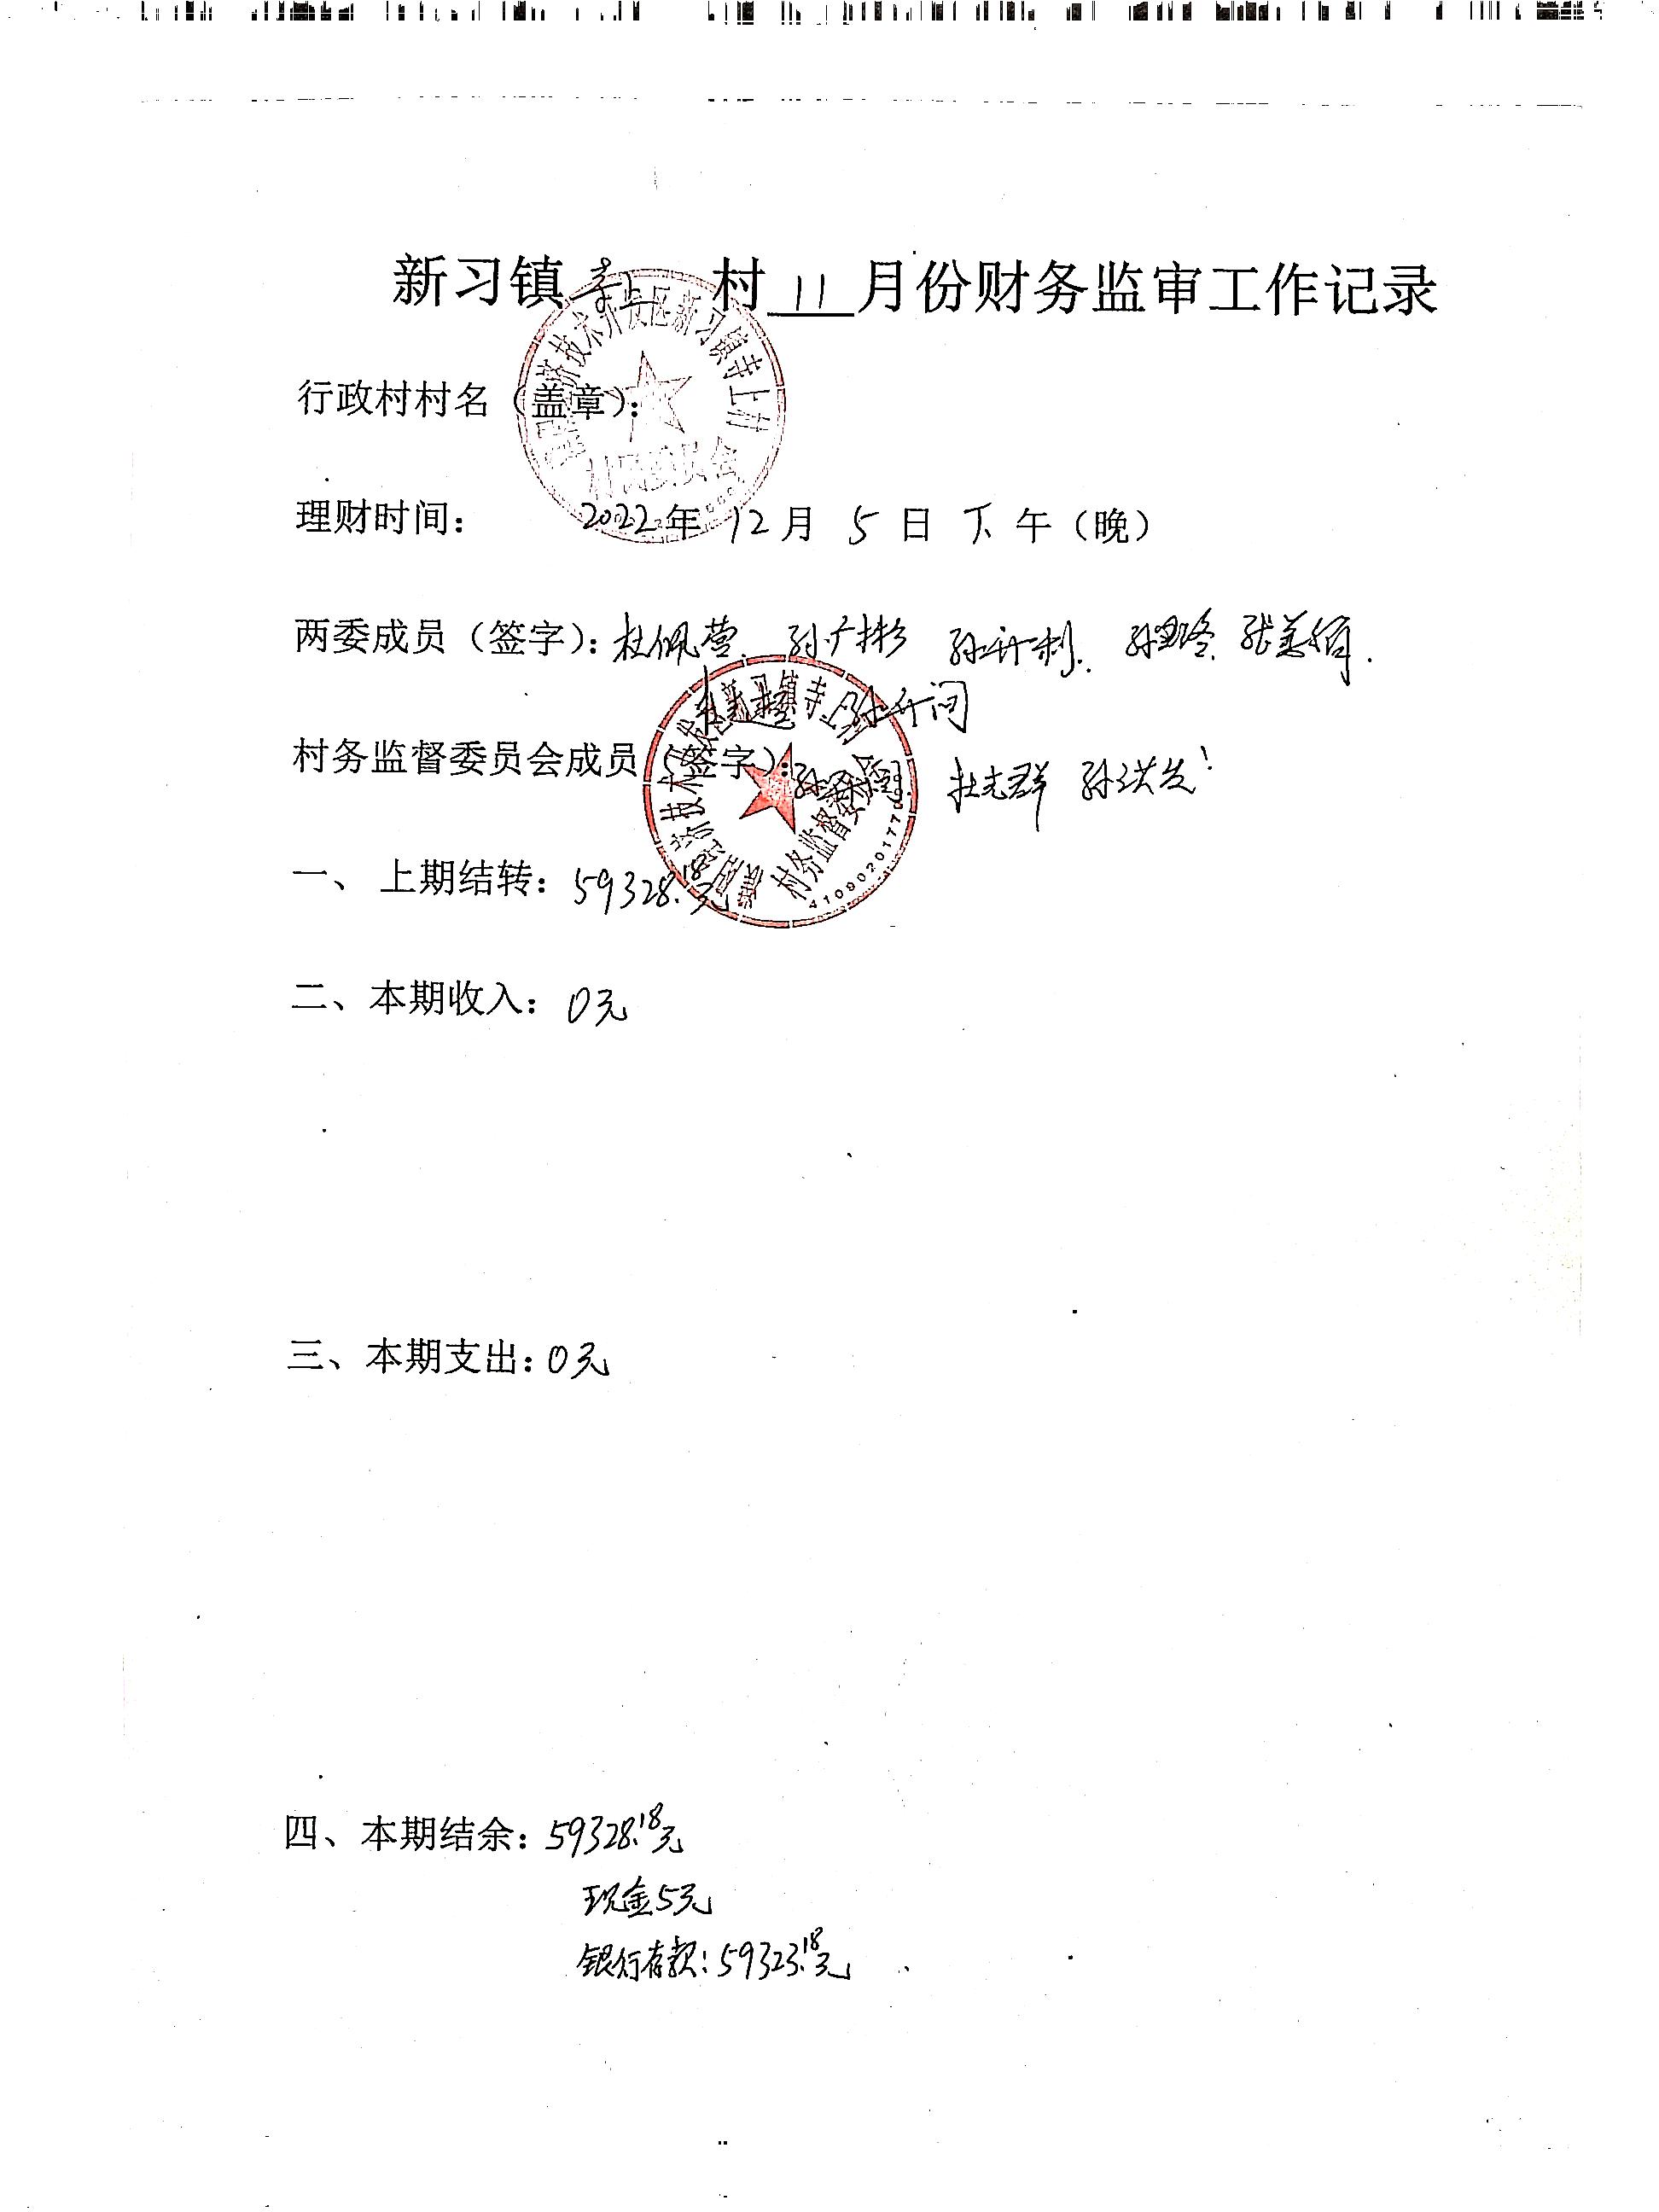 新习镇寺上村11月份财务监审工作记录
行政村村名（盖章）：
新习镇寺上村
村民委员会
理财时间： 2022年12月5日下午（晚）
两委成员（签字）：杜佩莹 孙广彬 孙升利
孙升问
村务监督委员会成员（签字）： 杜志群 孙洪发
新习镇寺上村
村务监督委员会
一、 上期结转：59328.18元
二、本期收入：0元
三、本期支出：0元
四、本期结余：59328.18元
现金5元
银行存款：59323.18元